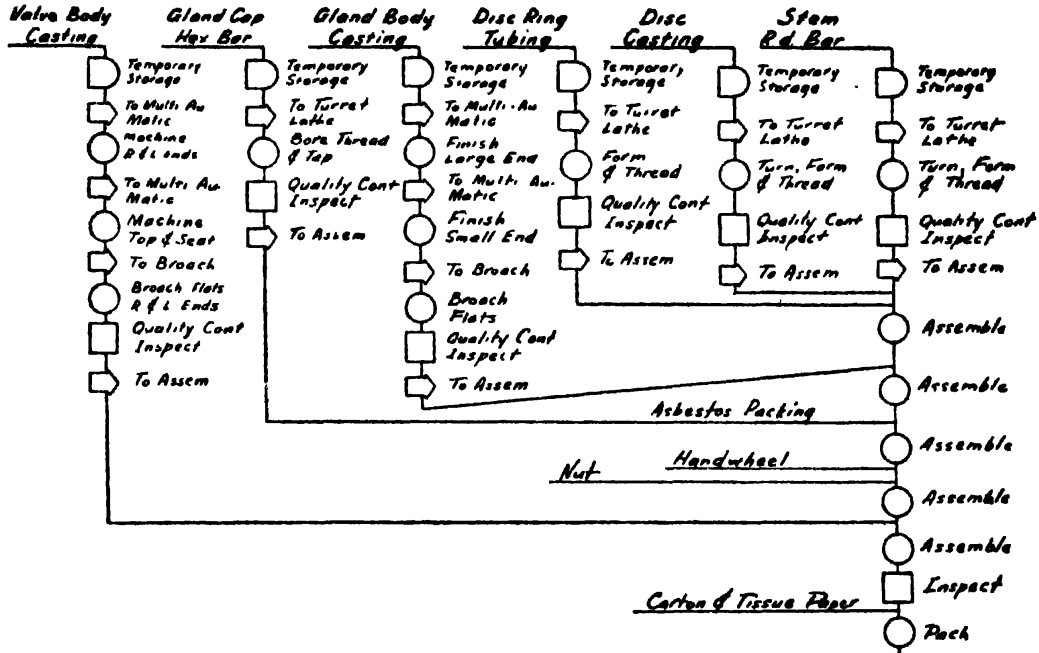 Valve Body
Casting
Temporary
Storage
To Multi Au
Matic
Machine
R & L ends
To Multi Au
Matic
Machine
Top & Seat
To Broach
Broach Flats
R & L Ends
Quality Cont
Inspect
To Assem
Gland Cap
Hex Bar
Temporary
Storage
To Turret
Lathe
Bore Thread
& Tap
Quality Cont
Inspect
To Assem
Gland Body
Casting
Temporary
Storage
To Multi-Au
Matic
Finish
Large End
To Multi Au.
Matic
Finish
Small End
To Broach
Broach
Flats
Quality Cont
Inspect
To Assem
Disc Ring
Tubing
Temporary
Storage
To Turret
Lathe
Form
& Thread
Quality Cont
Inspect
To Assem
Disc
Casting
Temporary
Storage
To Turret
Lathe
Turn, Form
& Thread
Quality Cont
Inspect
To Assem
Stem
Rd. Bar
Temporary
Storage
To Turret
Lathe
Turn, Form
& Thread
Quality Cont
Inspect
To Assem
Assemble
Assemble
Asbestos Packing
Assemble
Handwheel
Nut
Assemble
Assemble
Inspect
Carton & Tissue Paper
Pack